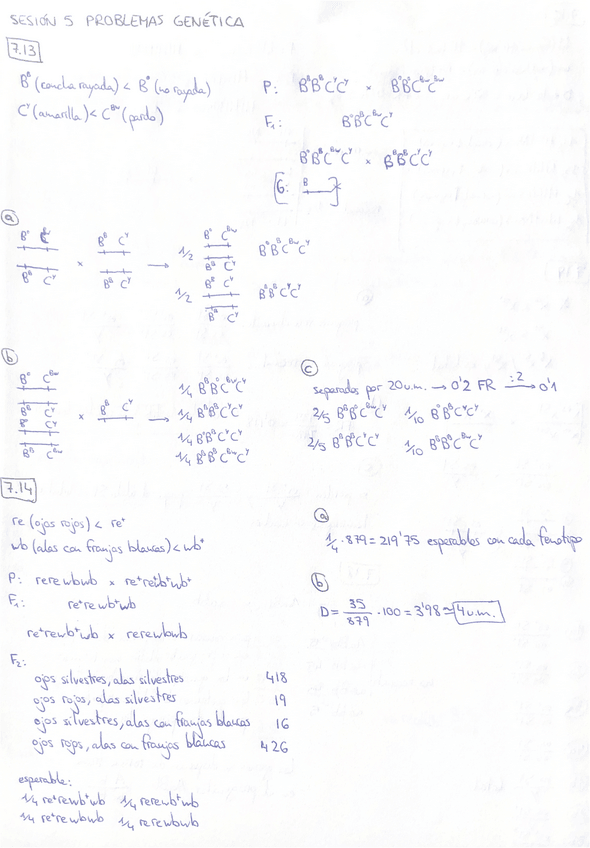 SESIÓN 5 PROBLEMAS GENÉTICA
7.13
Bᴮ (concha rayada) < B° (no rayada)
Cʸ (amarilla) < Cᴮʷ (pardo)
P: BᴮBᴮCʸCʸ × B°B°CᴮʷCᴮʷ
F₁: B°BᴮCᴮʷCʸ
B°BᴮCᴮʷCʸ × BᴮBᴮCʸCʸ
G: B
a
B° Cᴮʷ
Bᴮ Cʸ
×
Bᴮ Cʸ
Bᴮ Cʸ
→
1/2 B° Cᴮʷ
Bᴮ Cʸ
B°BᴮCᴮʷCʸ
1/2 Bᴮ Cʸ
Bᴮ Cʸ
BᴮBᴮCʸCʸ
b
B° Cᴮʷ
Bᴮ Cʸ
B° Cʸ
Bᴮ Cᴮʷ
× Bᴮ Cʸ →
1/4 BᴮB°CᴮʷCʸ
1/4 BᴮBᴮCʸCʸ
1/4 B°BᴮCʸCʸ
1/4 BᴮBᴮCᴮʷCʸ
c
separados por 20 u.m. → 0'2 FR :2→ 0'1
2/5 B°BᴮCᴮʷCʸ 1/10 B°BᴮCʸCʸ
2/5 BᴮBᴮCʸCʸ 1/10 BᴮBᴮCᴮʷCʸ
7.14
re (ojos rojos) < re⁺
wb (alas con franjas blancas) < wb⁺
P: rerewbwb × re⁺re⁺wb⁺wb⁺
F₁: re⁺re wb⁺wb
re⁺re wb⁺wb × rerewbwb
F₂:
ojos silvestres, alas silvestres 418
ojos rojos, alas silvestres 19
ojos silvestres, alas con franjas blancas 16
ojos rojos, alas con franjas blancas 426
esperable:
1/4 re⁺rewb⁺wb 1/4 rerewb⁺wb
1/4 re⁺rewbwb 1/4 rerewbwb
a
1/4 · 879 = 219'75 esperables con cada fenotipo
b
D = 35/879 · 100 = 3'98 ≃ 4 u.m.